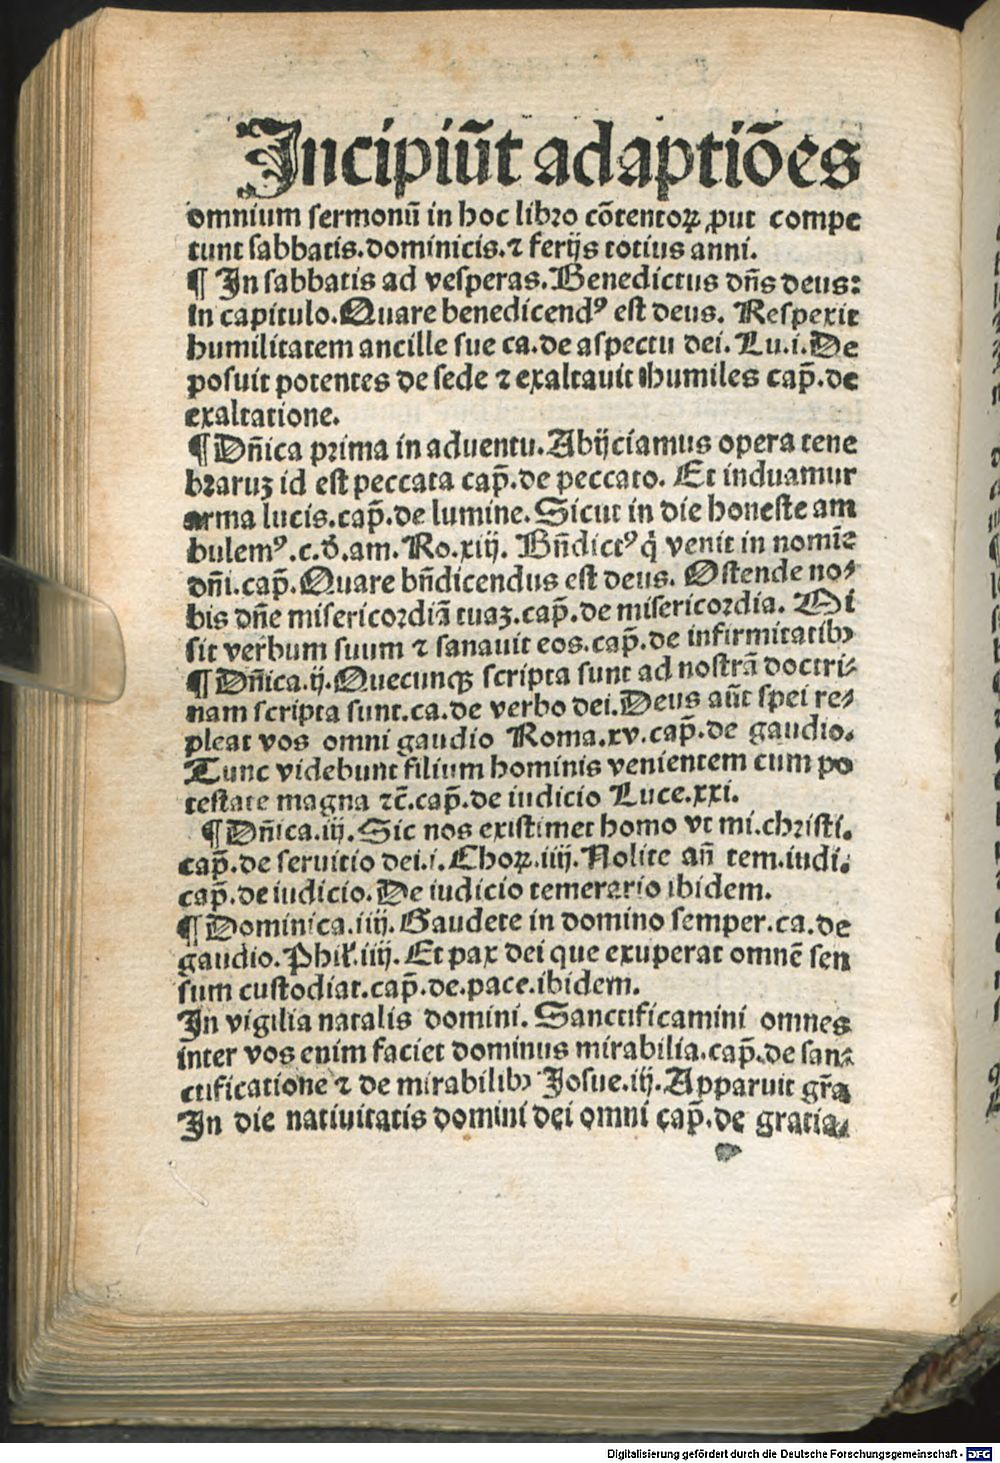 Incipiūt adaptiões
omnium sermonū in hoc libro cōtentoꝝ ꝓut compe
tunt sabbatis.dominicis.⁊ ferijs totius anni.
¶ In sabbatis ad vesperas.Benedictus dn̄s deus:
in capitulo.Quare benedicendꝰ est deus. Respexit
humilitatem ancille sue ca.de aspectu dei.Lu.i.De
posuit potentes de sede ⁊ exaltauit humiles cap̄.de
exaltatione.
¶ Dn̄ica prima in aduentu.Abijciamus opera tene
braruꝫ id est peccata cap̄.de peccato. Et induamur
arma lucis.cap̄.de lumine.Sicut in die honeste am
bulemꝰ.c.d̄.am.Ro.xiij. Bn̄dictꝰ q̇ venit in nomīe
dn̄i.cap̄.Quare bn̄dicendus est deus. Ostende no⸗
bis dn̄e misericordiā tuaꝫ.cap̄.de misericordia. Mi
sit verbum suum ⁊ sanauit eos.cap̄.de infirmitatibꝰ
¶ Dn̄ica.ij.Quecunqꝫ scripta sunt ad nostrā doctri⸗
nam scripta sunt.ca.de verbo dei.Deus aūt spei re⸗
pleat vos omni gaudio Roma.xv.cap̄.de gaudio.
Tunc videbunt filium hominis venientem cum po
testate magna ⁊c̄.cap̄.de iudicio Luce.xxi.
¶ Dn̄ica.iij.Sic nos existimet homo vt mi.christi.
cap̄.de seruitio dei.i.Choꝝ.iiij.Nolite an̄ tem.iudi.
cap̄.de iudicio.De iudicio temerario ibidem.
¶ Dominica.iiij.Gaudete in domino semper.ca.de
gaudio.Phil̄.iiij.Et pax dei que exuperat omnē sen
sum custodiat.cap̄.de.pace.ibidem.
In vigilia natalis domini.Sanctificamini omnes
inter vos enim faciet dominus mirabilia.cap̄.de san⸗
ctificatione ⁊ de mirabilibꝰ Josue.iij.Apparuit gr̄a
In die natiuitatis domini dei omni cap̄.de gratia.
Digitalisierung gefördert durch die Deutsche Forschungsgemeinschaft - DFG